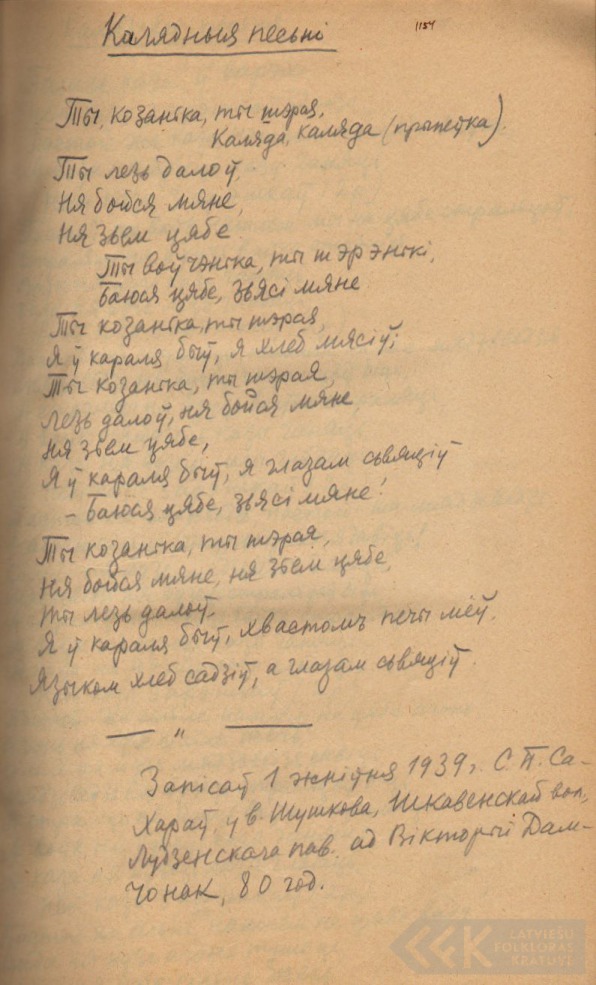 Калядныя песьні
1154
Ты, козанька, ты шэрая,
Каляда, каляда (прыпеўка).
Ты лезь далоў,
Ня бойся мяне,
Ня зьем цябе.
Ты воўчэнька, ты шэрэнькі,
Баюся цябе, зьясі мяне.
Ты козанька, ты шэрая,
Я ў караля быў, я хлеб мясіў;
Ты козанька, ты шэрая,
Лезь далоў, ня бойся мяне,
Ня зьем цябе,
Я ў караля быў, я глазам сьвяціў
- Баюся цябе, зьясі мяне!
Ты козанька, ты шэрая,
Ня бойся мяне, ня зьем цябе,
Ты лезь далоў.
Я ў караля быў, хвастомъ печы мёў,
Языком хлеб садзіў, а глазам сьвяціў.
— „ —
Запісаў 1 жніўня 1939 г. С. П. Са-
хараў, у в. Шушкова, Шкавенскай вол.,
Лудзенскага пав. ад Вікторыі Дам-
чонак, 80 год.
LATVIEŠU
FOLKLORAS
KRĀTUVE